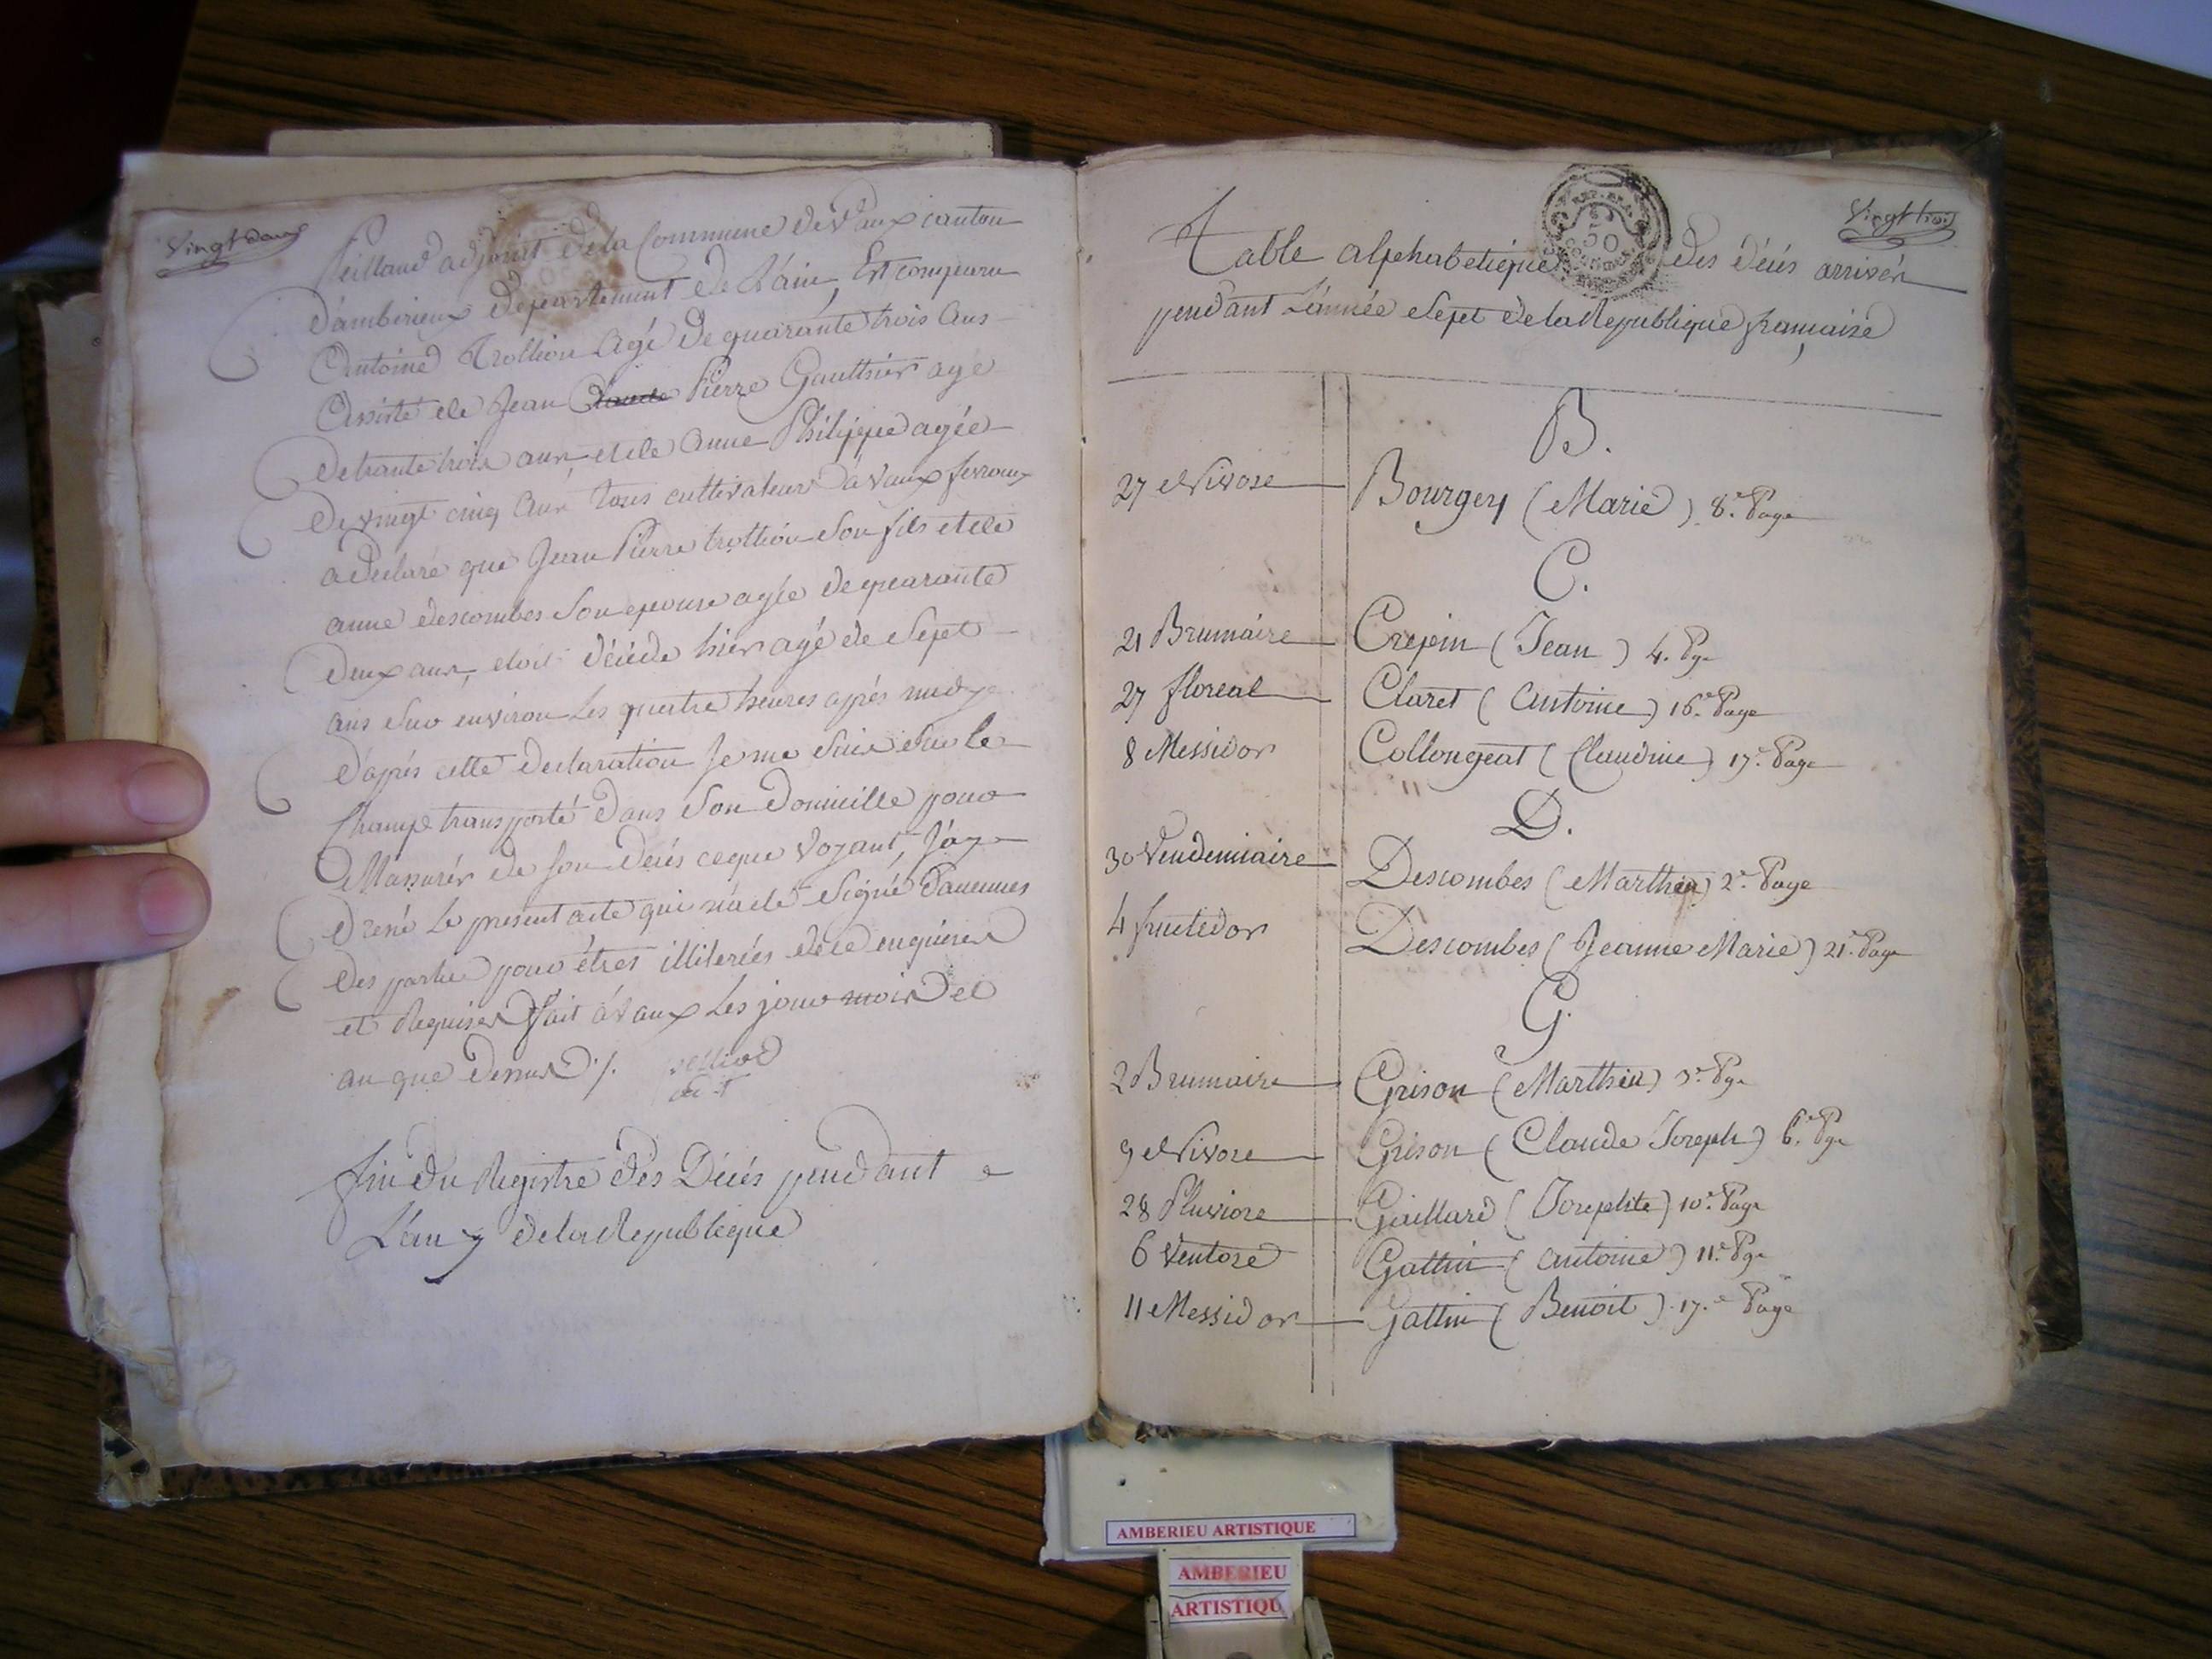 Vingt deux
adjoint de la Commune de Vaux canton
d'ambérieux département de L'ain, Est comparu
Antoine Trollion agé de quarante trois ans
Assisté de Jean Claude Pierre Gauthier age
de trante trois ans, et de anne Philippe agée
de vingt cinq ans tous cultivateurs a vaux fevroux
a déclaré que Jean Pierre trollion son fils et de
anne descombes son epouse agée de quarante
deux ans, etoit décédé hier agé de sept
ans sur environ Les quatre heures après midy
d'après cette declaration Je me suis sur le
Champ transporté dans son domicille pour
M'assurér de son decés ceque voyant, J'ay
dressé Le present acte qui n'a été signé d'aucunes
des partie pour étres illiterés de ce enquises
et Requises fait à vaux Les jour mois et
an que dessus ./.
fin du Registre des Décés pendant
L'an 7 de la Republique
Vingt trois
Table alphabetique des décés arrivés
pendant L'année sept de la Republique française
B.
27 Nivose Bourgey (Marie) 8.e Page
C.
21 Brumaire Crepin (Jean) 4. Pge
27 floreal Claret (Antoine) 16.e Page
8 Messidor Collongeat (Claudine) 17.e Page
D.
30 Vendemiaire Descombes (Marthieu) 2.e Page
4 fructidor Descombes (Jeanne Marie) 21.e Page
G.
2 Brumaire Grison (Marthieu) 3.e Pge
9 Nivose Grison (Claude Joseph) 6.e Pge
28 Pluviose Gaillard (Josephte) 10.e Page
6 Ventose Gattin (antoine) 11.e Pge
11 Messidor Gattin (Benoit) 17.e Page
AMBERIEU ARTISTIQUE
AMBERIEU
ARTISTIQU